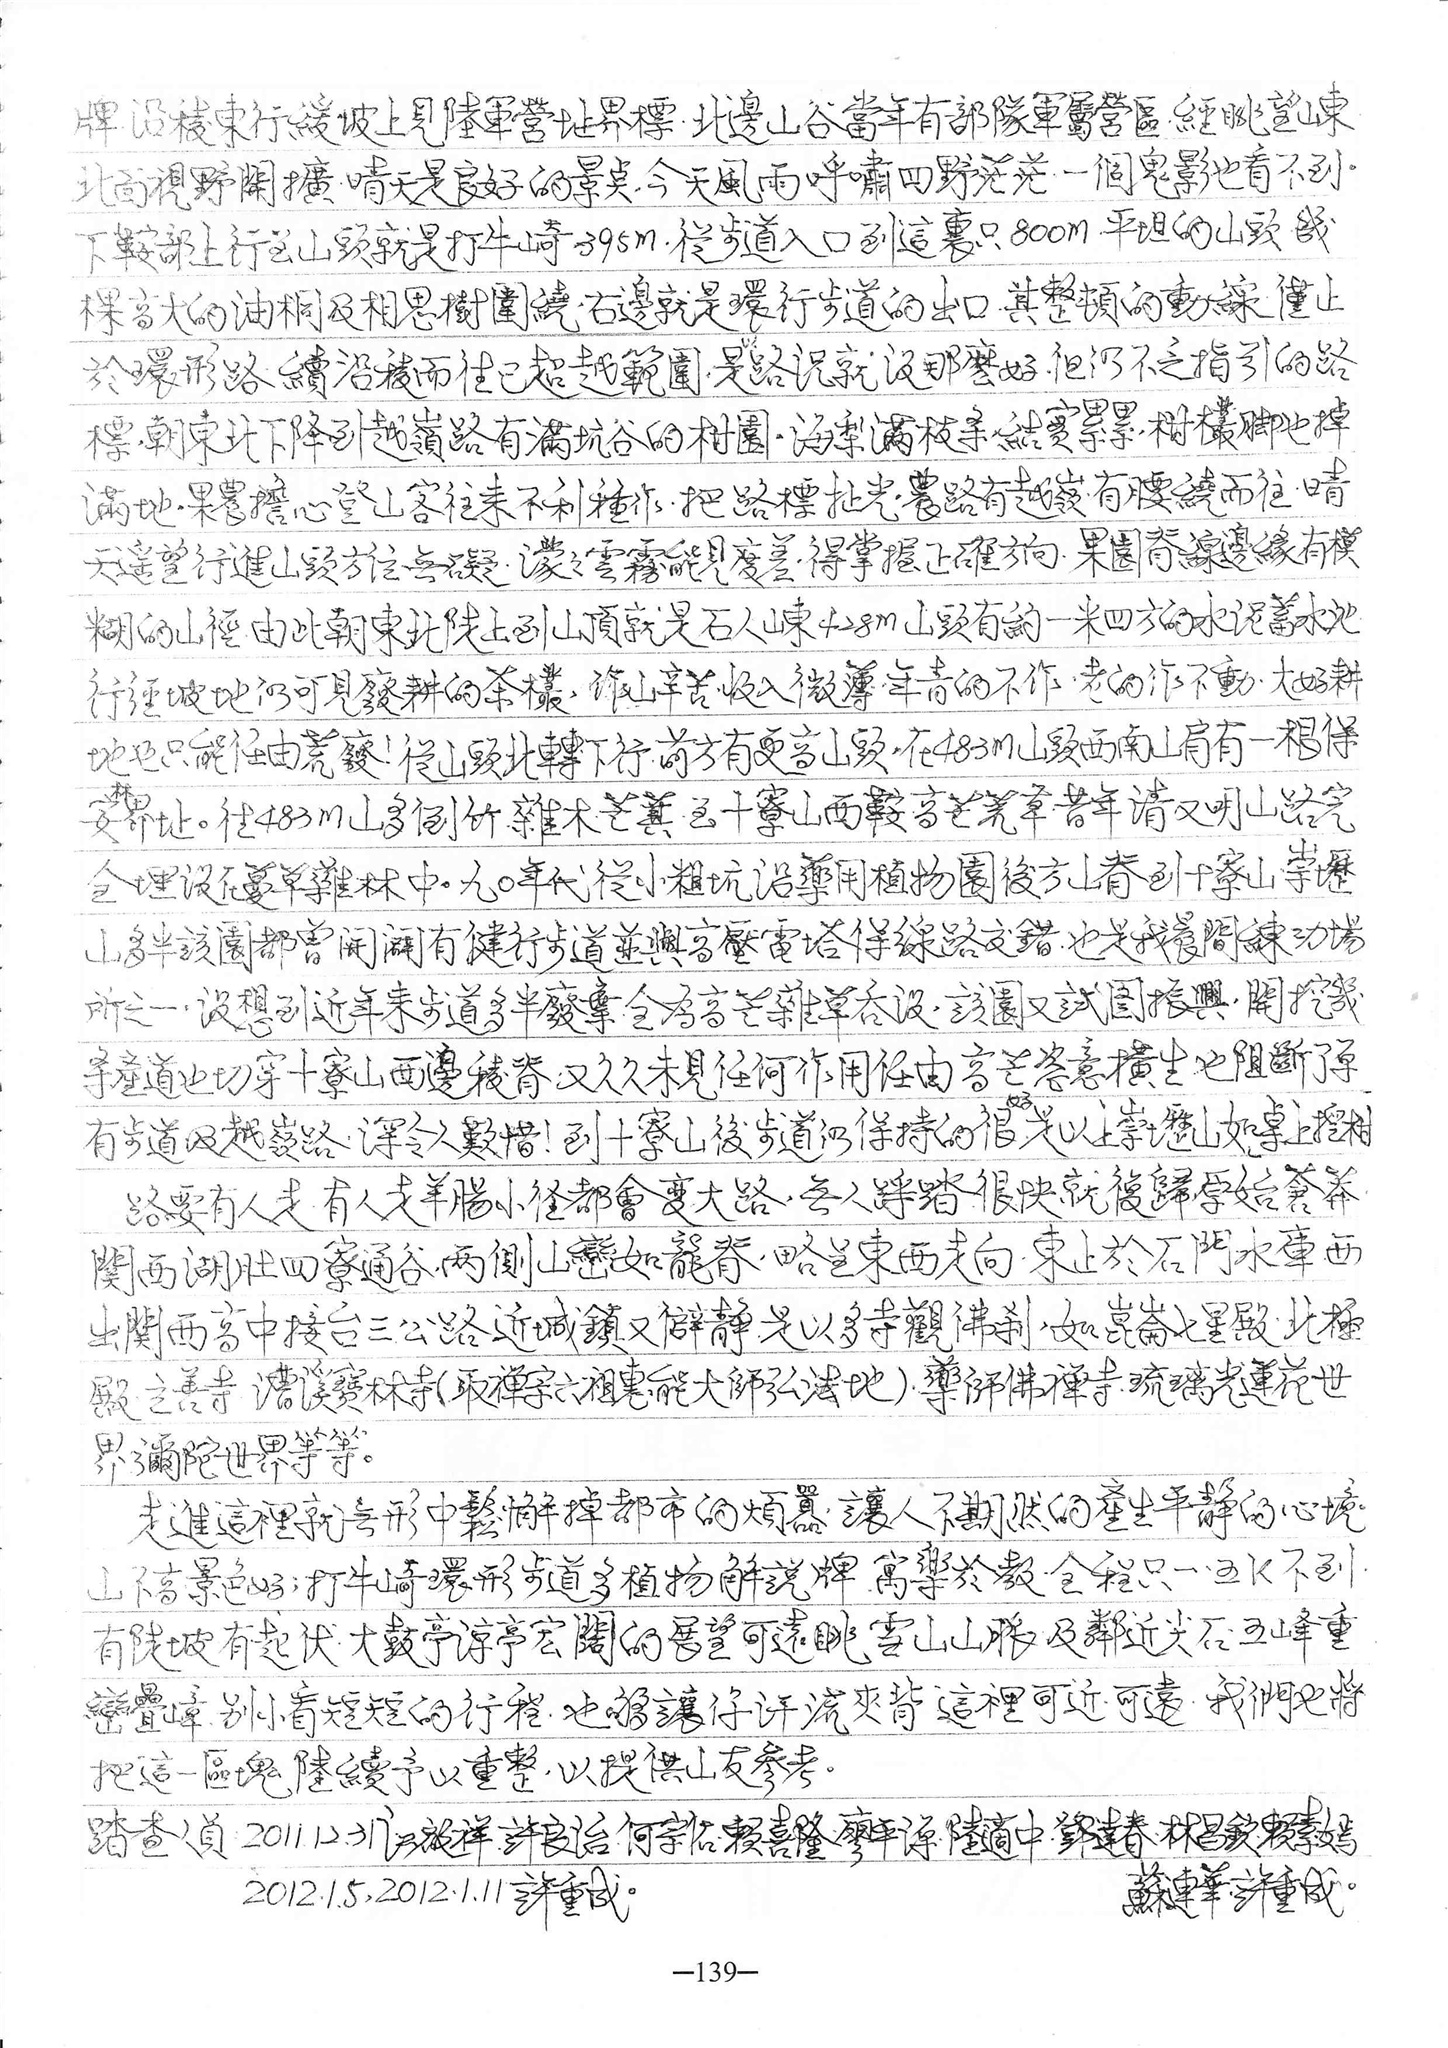 牌.沿稜東行緩坡上見陸軍營址界標.北邊山谷當年有部隊軍屬營區.經眺望山東
北面視野開擴.晴天是良好的景点.今天風雨呼嘯四野茫茫.一個鬼影也看不到.
下鞍部上行至山頭就是打牛崎395m.從步道入口到這裏只800m.平坦的山頭幾
棵高大的油桐及相思樹圍繞.右邊就是環行步道的出口.其整頓的動線僅止
於環形路.續沿稜而往已超越範圍.是以路況就没那麼好.但仍不乏指引的路
標.朝東北下降到越嶺路有滿坑谷的柑園.海梨滿枝条.結實累累.柑欉脚也掉
滿地.果農擔心登山客往来不利種作.把路標扯光.農路有越嶺.有腰繞而往.晴
天遥望行進山頭方位無礙.濛濛雲霧能見度差.得掌握正確方向.果園脊線邊緣有模
糊的山徑.由此朝東北陡上到山頂就是石人山東428m山頭有約一米四方的水泥蓄水池
行經坡地仍可見廢耕的茶欉.作山辛苦.收入微薄.年青的不作.老的作不動.大好耕
地也只能任由荒廢!從山頭北轉下行.前方有更高山頭.在483m山頭西南山肩有一根保
安林界址。往483m山多倒竹雜木芒萁.至十寮山西鞍高芒荒草昔年清又明山路完
全埋没在蔓草雜林中。九〇年代從小粗坑沿藥用植物園後方山脊到十寮山.崇壢
山多半該園都曾開闢有健行步道並與高壓電塔保線路交錯.也是我晨間練功場
所之一.没想到近年来步道多半廢棄.全為高芒雜草吞没.該園又試圖振興.開挖幾
条產道也切穿十寮山西邊稜脊.又久久未見任何作用任由高芒恣意橫生也阻斷了原
有步道及越嶺路.深令人歎惜!到十寮山後步道仍保持的很好是以上崇壢山如桌上揑柑
路要有人走.有人走羊腸小徑都會變大路.無人踩踏很快就復歸原始蒼莽
關西湖肚四寮通谷.兩側山巒如龍脊.略呈東西走向.東止於石門水庫西
出關西高中接台三公路.近城鎮又僻静.是以多寺觀佛刹.如崑崙七星殿.北極
殿.立善寺.漕溪寶林寺(取禪宗六祖惠能大師弘法地).藥師佛禪寺.琉璃光蓮花世
界.彌陀世界等等。
走進這裡就無形中鬆懈掉都市的煩囂.讓人不期然的產生平静的心境.
山不高景色好;打牛崎環形步道多植物解說牌.寓樂於教.全程只一.五K不到.
有陡坡有起伏.大鼓亭涼亭宏闊的展望可遠眺雪山山脈.及鄰近尖石五峰重
巒疊嶂.别小看短短的行程.也够讓你汗流夾背.這裡可近可遠.我們也將
把這一區塊陸續予以重整.以提供山友參考。
踏查人員 2011.12.31 許良治.何宗佑.賴喜隆.廖平源.陸適中.鄧達春.林昌欽.賴素嫣
2012.1.5,2012.1.11許重成。 蘇連華.許重成。
—139—